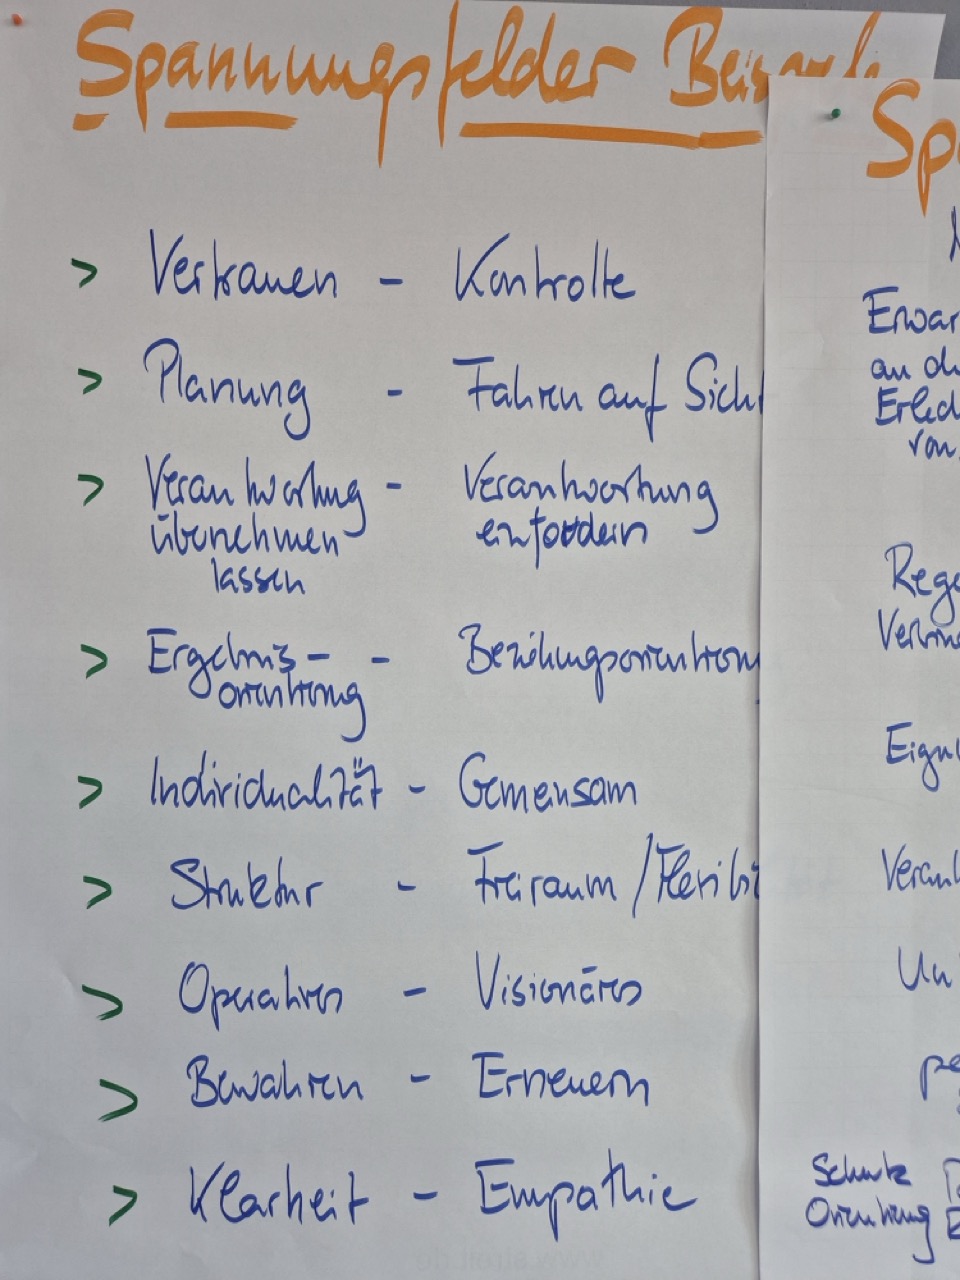 Spannungsfelder Beispiele
> Vertrauen - Kontrolle
> Planung - Fahren auf Sicht
> Verantwortung - Verantwortung
übernehmen einfordern
lassen
> Ergebnis- - Beziehungsorientierung
orientierung
> Individualität - Gemeinsam
> Struktur - Freiraum / Flexibi
> Operatives - Visionäres
> Bewahren - Erneuern
> Klarheit - Empathie
Sp
Erwar
an di
Erled
von
Rege
Verbin
Eign
Verant
Un
pe
Schutz
Orientierung